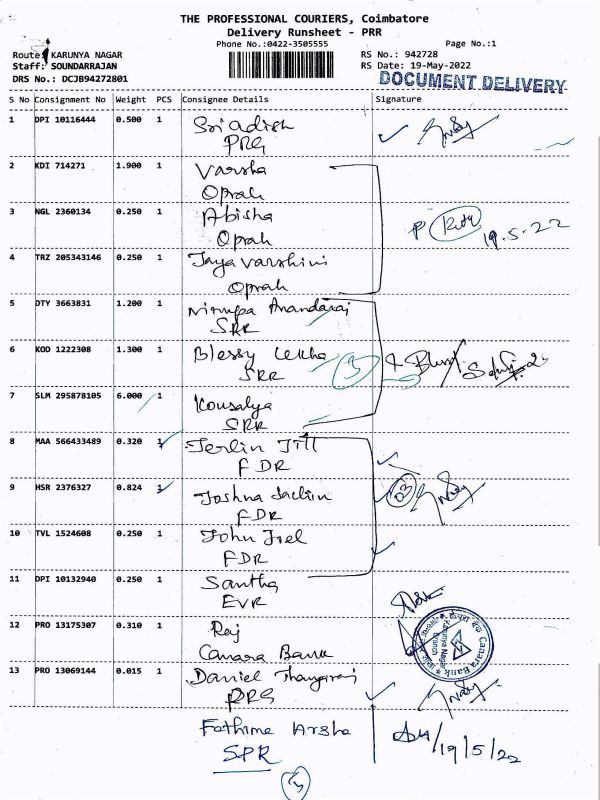 THE PROFESSIONAL COURIERS, Coimbatore
Delivery Runsheet - PRR
Phone No.:0422-3505555 Page No.:1
Route: KARUNYA NAGAR RS No.: 942728
Staff: SOUNDARRAJAN RS Date: 19-May-2022
DRS No.: DCJB94272801 DOCUMENT DELIVERY
S No Consignment No Weight PCS Consignee Details Signature
1 DPI 10116444 0.500 1 Sri Adish
PRG
2 KDI 714271 1.900 1 Varsha
Oprah
3 NGL 2360134 0.250 1 Abisha
Oprah 19.5.22
4 TRZ 205343146 0.250 1 Jayavarshini
Oprah
5 DTY 3663831 1.200 1 Nirupa Anandaraj
SRR
6 KOD 1222308 1.300 1 Blessy Lekha
SRR 3
7 SLM 295878105 6.000 1 Kousalya
SRR
8 MAA 566433489 0.320 1 Jerlin Jill
FDR
9 HSR 2376327 0.824 1 Joshna Jaclin
FDR 03
10 TVL 1524608 0.250 1 John Joel
FDR
11 DPI 10132940 0.250 1 Santha
EVR
12 PRO 13175307 0.310 1 Raj
Canara Bank
Canara Bank
Karunya Nagar
Branch
13 PRO 13069144 0.015 1 Daniel Thangaraj
PRG
Fathima Arsha
SPR 19/5/22